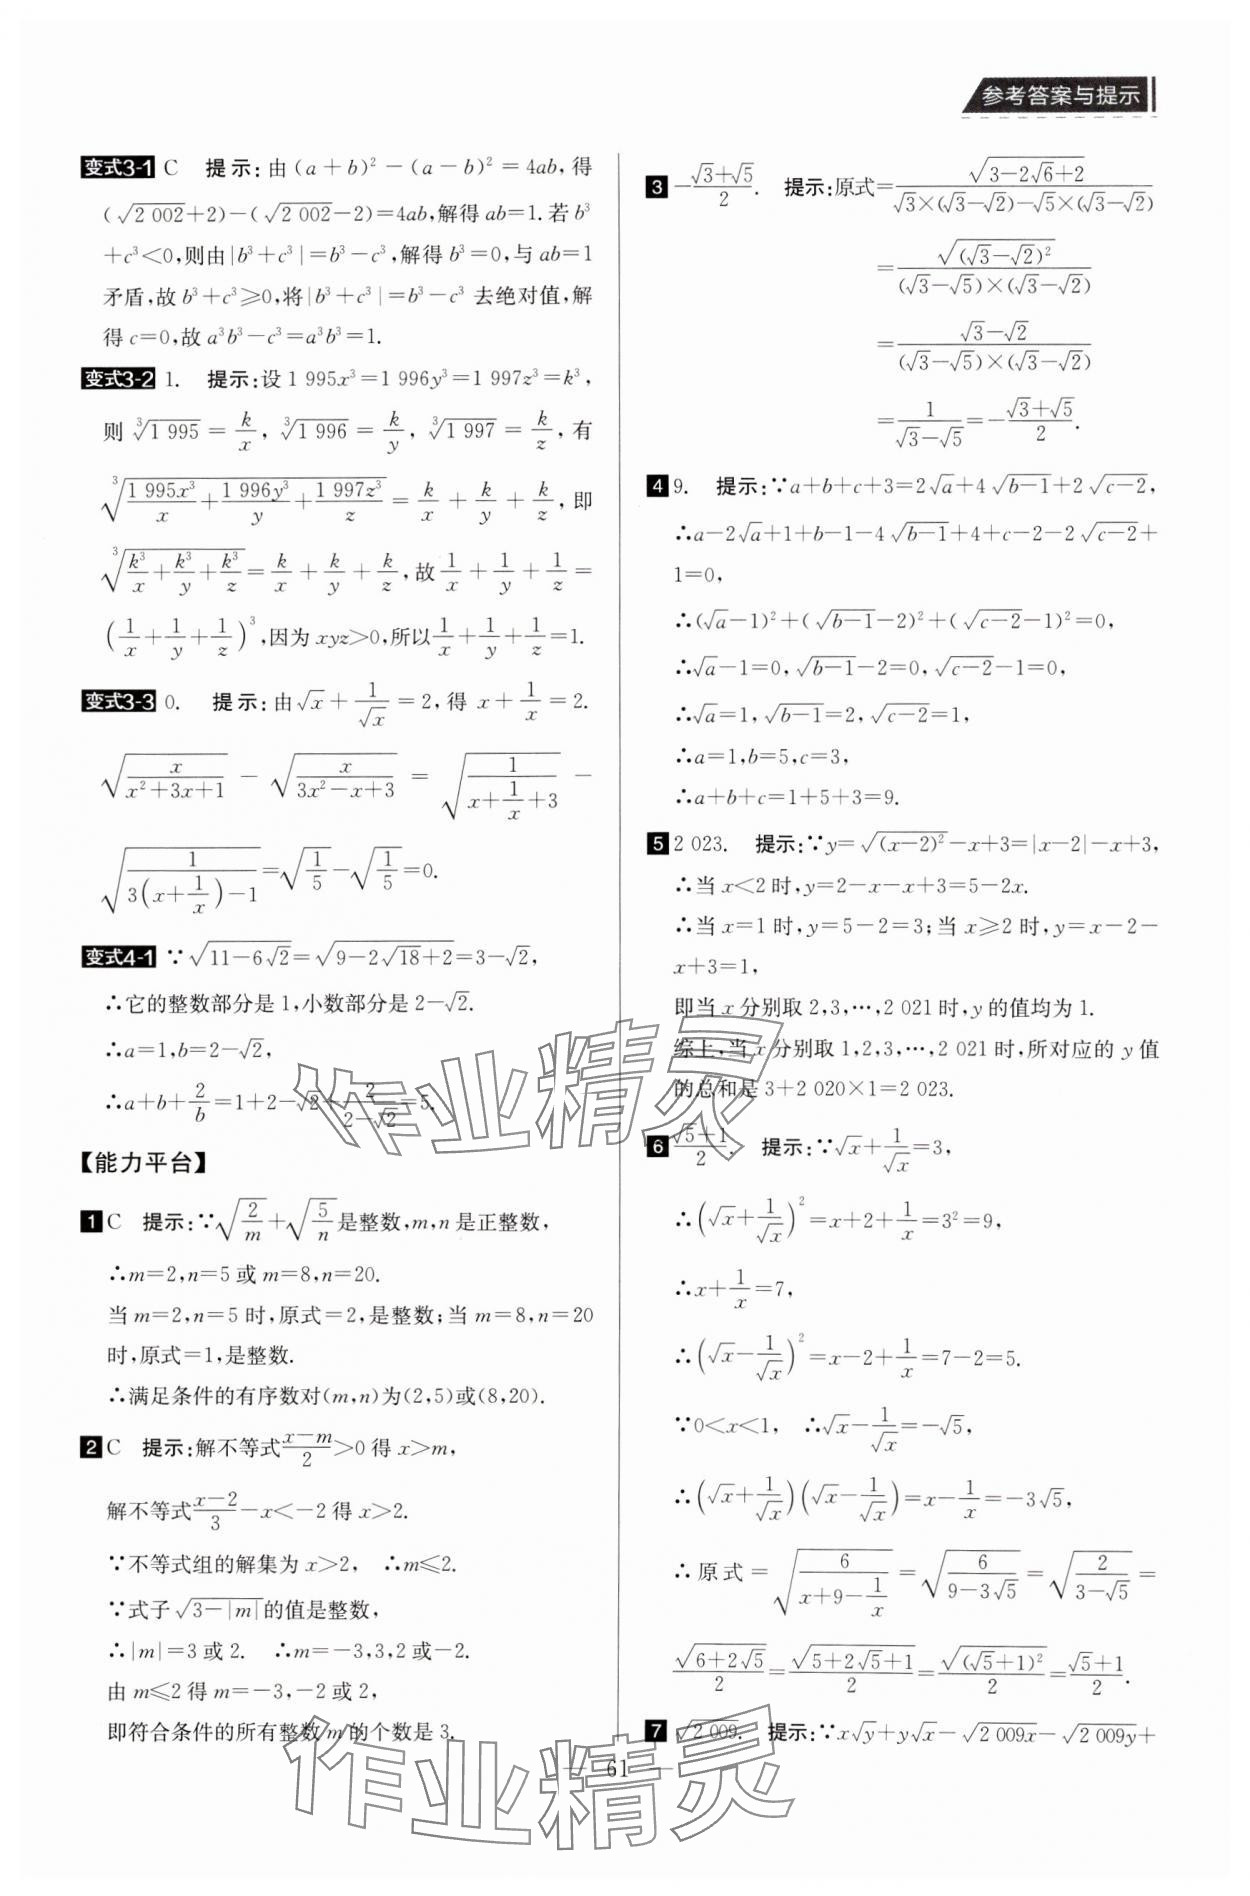 参考答案与提示
变式3-1 C 提示:由(a+b)²-(a-b)²=4ab,得
(√(2 002)+2)-(√(2 002)-2)=4ab,解得ab=1.若b³
+c³<0,则由|b³+c³|=b³-c³,解得b³=0,与ab=1
矛盾,故b³+c³≥0,将|b³+c³|=b³-c³去绝对值,解
得c=0,故a³b³-c³=a³b³=1.
变式3-2 1. 提示:设1 995x³=1 996y³=1 997z³=k³,
则∛(1 995)=k/x,∛(1 996)=k/y,∛(1 997)=k/z,有
∛(1 995x³/x+1 996y³/y+1 997z³/z)=k/x+k/y+k/z,即
∛(k³/x+k³/y+k³/z)=k/x+k/y+k/z,故1/x+1/y+1/z=
(1/x+1/y+1/z)³,因为xyz>0,所以1/x+1/y+1/z=1.
变式3-3 0. 提示:由√x+1/√x=2,得x+1/x=2.
√(x/(x²+3x+1))-√(x/(3x²-x+3))=√(1/(x+1/x+3))-
√(1/(3(x+1/x)-1))=√(1/5)-√(1/5)=0.
变式4-1 ∵√(11-6√2)=√(9-2√18+2)=3-√2,
∴它的整数部分是1,小数部分是2-√2.
∴a=1,b=2-√2,
∴a+b+2/b=1+2-√2+2/(2-√2)=5.
【能力平台】
1 C 提示:∵√(2/m)+√(5/n)是整数,m,n是正整数,
∴m=2,n=5或m=8,n=20.
当m=2,n=5时,原式=2,是整数;当m=8,n=20
时,原式=1,是整数.
∴满足条件的有序数对(m,n)为(2,5)或(8,20).
2 C 提示:解不等式(x-m)/2>0得x>m,
解不等式(x-2)/3-x<-2得x>2.
∵不等式组的解集为x>2, ∴m≤2.
∵式子√(3-|m|)的值是整数,
∴|m|=3或2. ∴m=-3,3,2或-2.
由m≤2得m=-3,-2或2,
即符合条件的所有整数m的个数是3.
3 -(√3+√5)/2. 提示:原式=√(3-2√6+2)/(√3×(√3-√2)-√5×(√3-√2))
=√((√3-√2)²)/((√3-√5)×(√3-√2))
=(√3-√2)/((√3-√5)×(√3-√2))
=1/(√3-√5)=-(√3+√5)/2.
4 9. 提示:∵a+b+c+3=2√a+4√(b-1)+2√(c-2),
∴a-2√a+1+b-1-4√(b-1)+4+c-2-2√(c-2)+
1=0,
∴(√a-1)²+(√(b-1)-2)²+(√(c-2)-1)²=0,
∴√a-1=0,√(b-1)-2=0,√(c-2)-1=0,
∴√a=1,√(b-1)=2,√(c-2)=1,
∴a=1,b=5,c=3,
∴a+b+c=1+5+3=9.
5 2 023. 提示:∵y=√((x-2)²)-x+3=|x-2|-x+3,
∴当x<2时,y=2-x-x+3=5-2x.
∴当x=1时,y=5-2=3;当x≥2时,y=x-2-
x+3=1,
即当x分别取2,3,…,2 021时,y的值均为1.
综上,当x分别取1,2,3,…,2 021时,所对应的y值
的总和是3+2 020×1=2 023.
6 (√5+1)/2. 提示:∵√x+1/√x=3,
∴(√x+1/√x)²=x+2+1/x=3²=9,
∴x+1/x=7,
∴(√x-1/√x)²=x-2+1/x=7-2=5.
∵0<x<1, ∴√x-1/√x=-√5,
∴(√x+1/√x)(√x-1/√x)=x-1/x=-3√5,
∴原式=√(6/(x+9-1/x))=√(6/(9-3√5))=√(2/(3-√5))=
√(6+2√5)/2=√(5+2√5+1)/2=√((√5+1)²)/2=(√5+1)/2.
7 √(2 009). 提示:∵x√y+y√x-√(2 009x)-√(2 009y)+
61
作业精灵
作业精灵